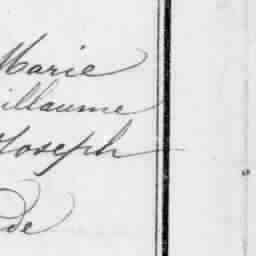 Marie
illaume
Joseph
de